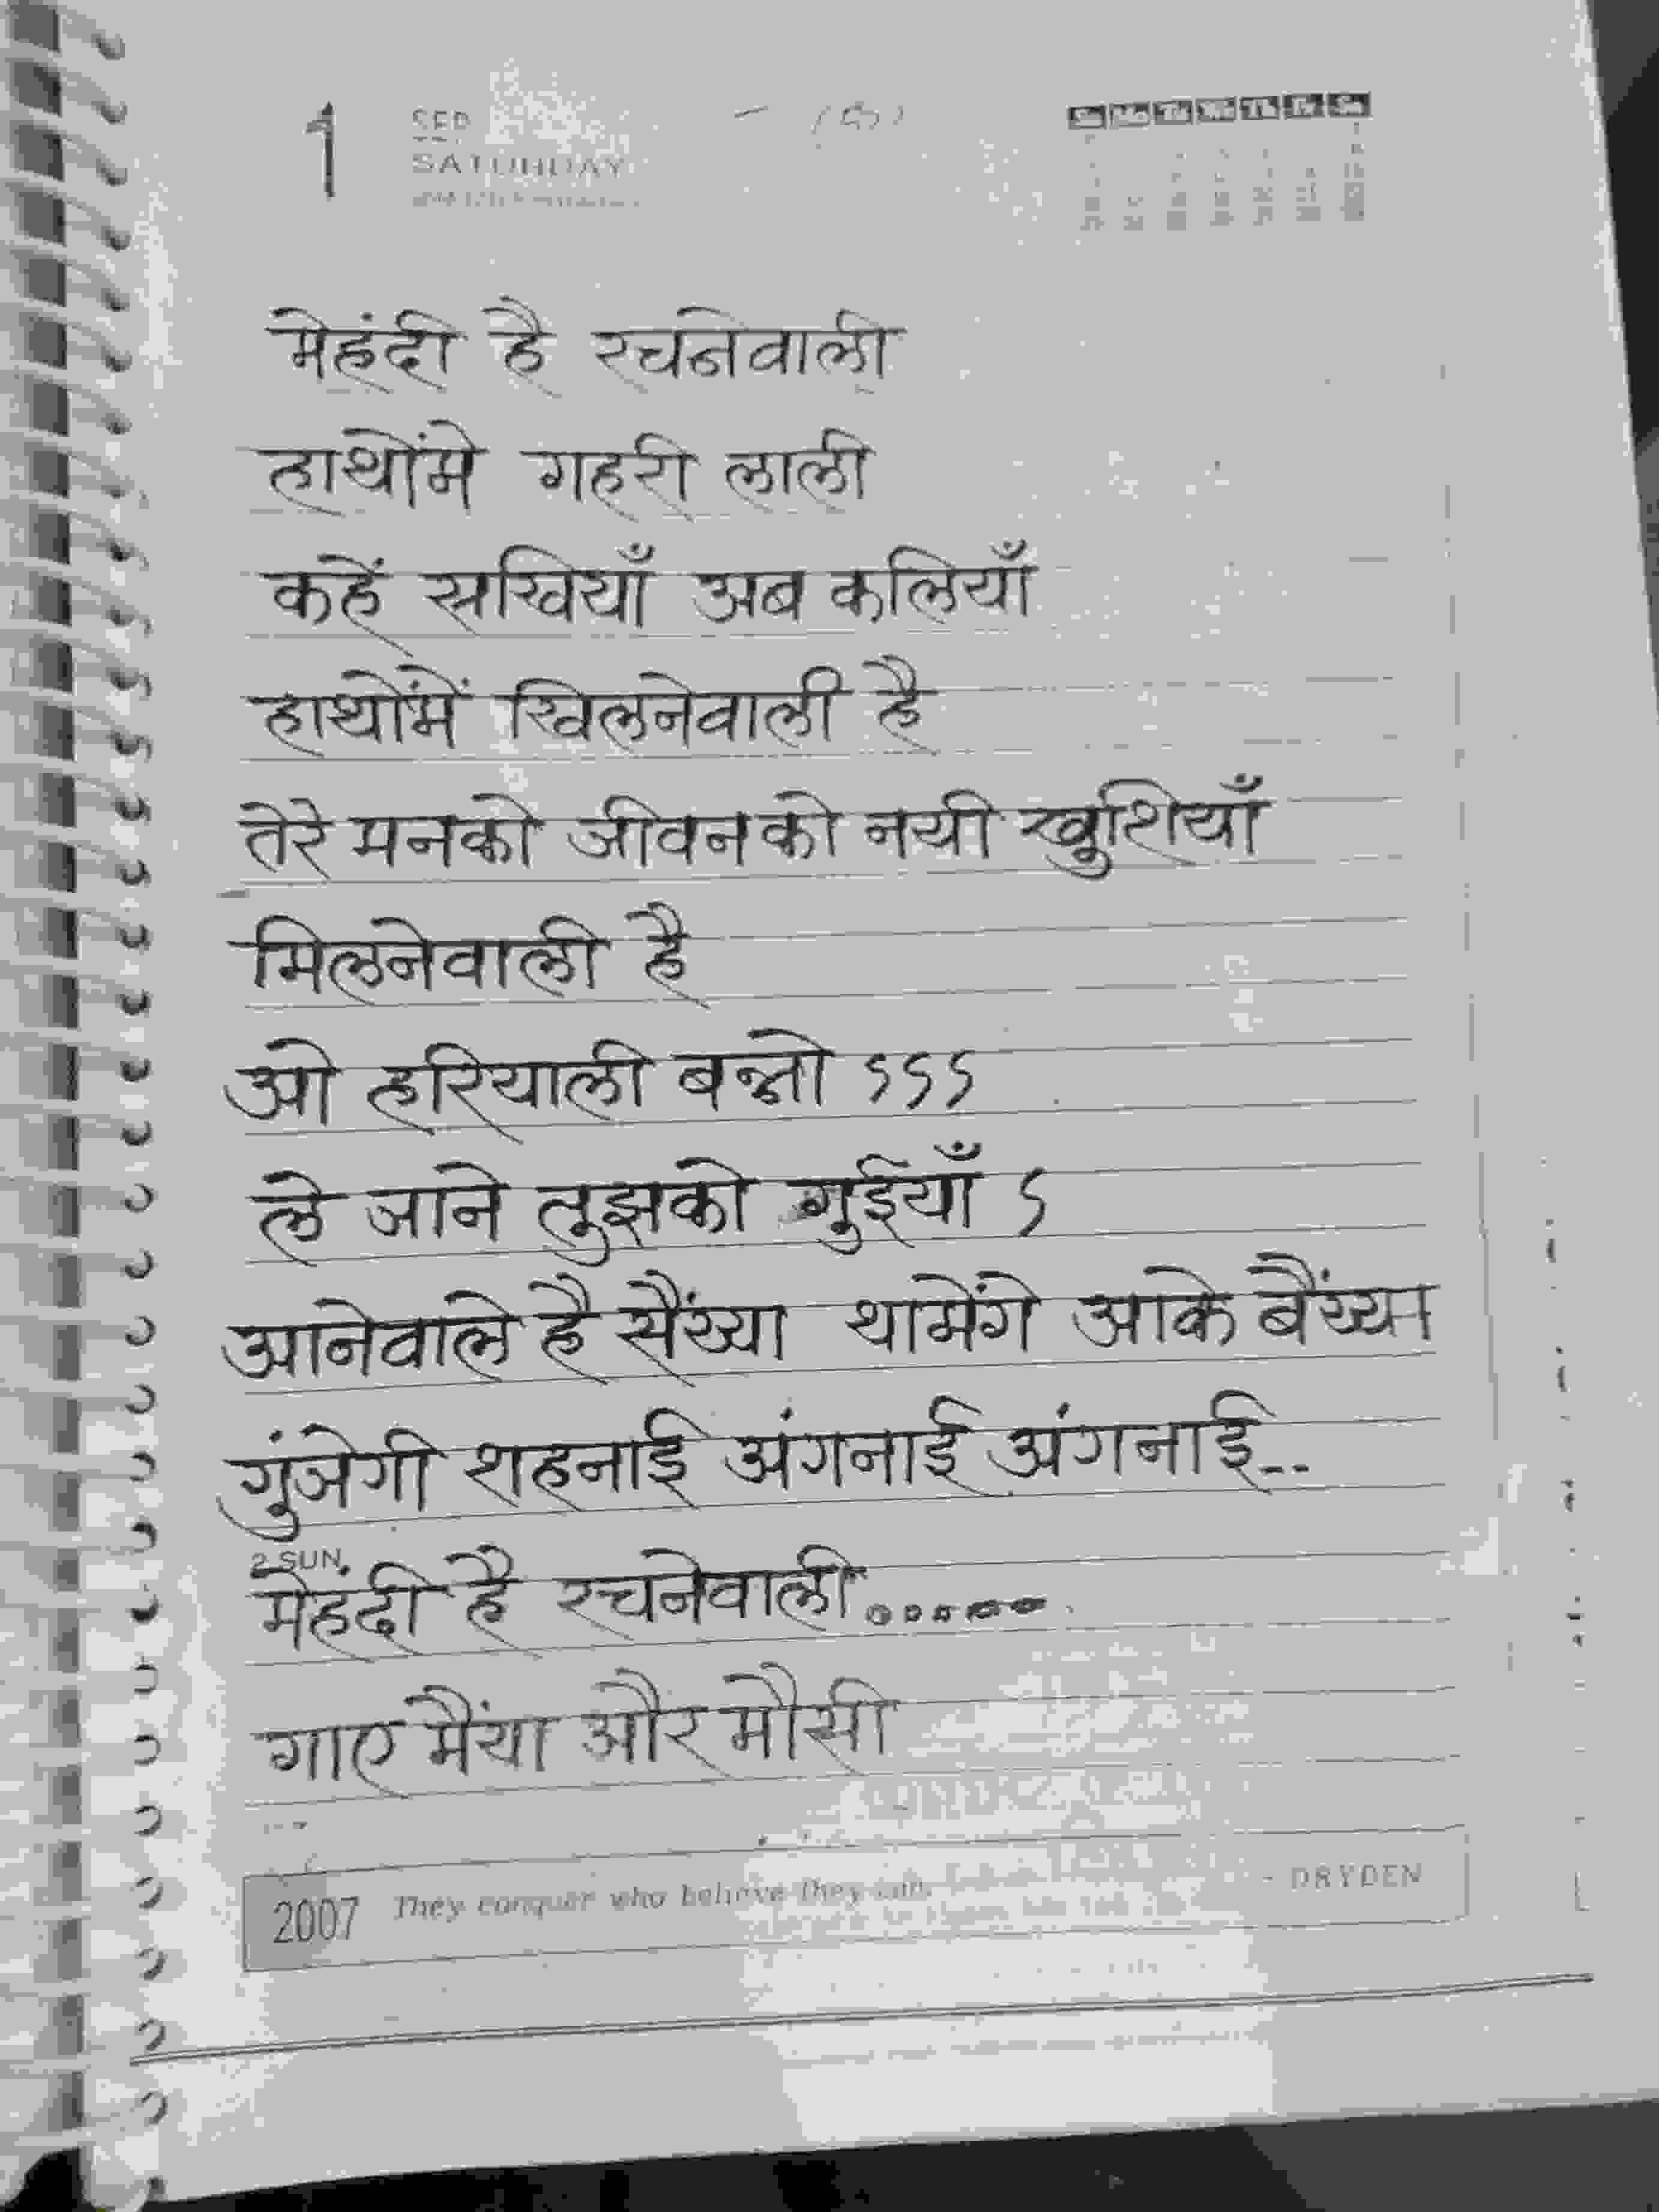 1
SEP
SATURDAY
मेहंदी है रचनेवाली
हाथोंमे गहरी लाली
कहें सखियाँ अब कलियाँ
हाथोंमें खिलनेवाली है
तेरे मनको जीवनको नयी खुशियाँ
मिलनेवाली है
ओ हरियाली बन्नो ऽऽऽ
ले जाने तुझको गुईयाँ ऽ
आनेवाले है सैंय्या थामेंगे आके बैंय्या
गुंजेगी शहनाई अंगनाई अंगनाई..
2 SUN
मेहंदी है रचनेवाली......
गाए मैंया और मौसी
2007 They conquer who believe they can. - DRYDEN